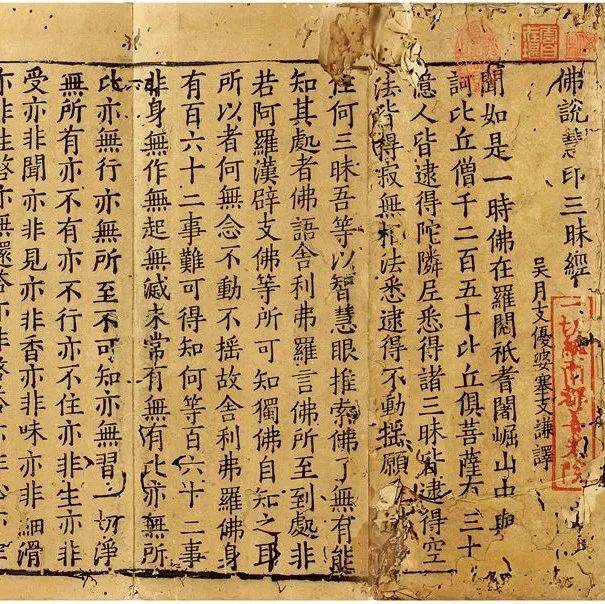 佛說慧印三昧經
吳月支優婆塞支謙譯
一切經南都善光院
聞如是一時佛在羅閱祇耆闍崛山中與
訶比丘僧千二百五十比丘俱菩薩三十
億人皆逮得陀隣尼悉得諸三昧皆逮得空
法皆得寂無相法悉逮得不動搖願
何三昧吾等以智慧眼推索佛了無有能
知其處者佛語舍利弗羅言佛所至到處非
若阿羅漢辟支佛等所可知獨佛自知之耳
所以者何無念不動不搖故舍利弗羅佛身
有百六十二事難可得知何等百六十二事
非身無作無起無滅未常有無有比亦無所
比亦無行亦無所至不可知亦無習一切淨
無所有亦不有亦不行亦不住亦非生亦非
受亦非聞亦非見亦非香亦非味亦非細滑